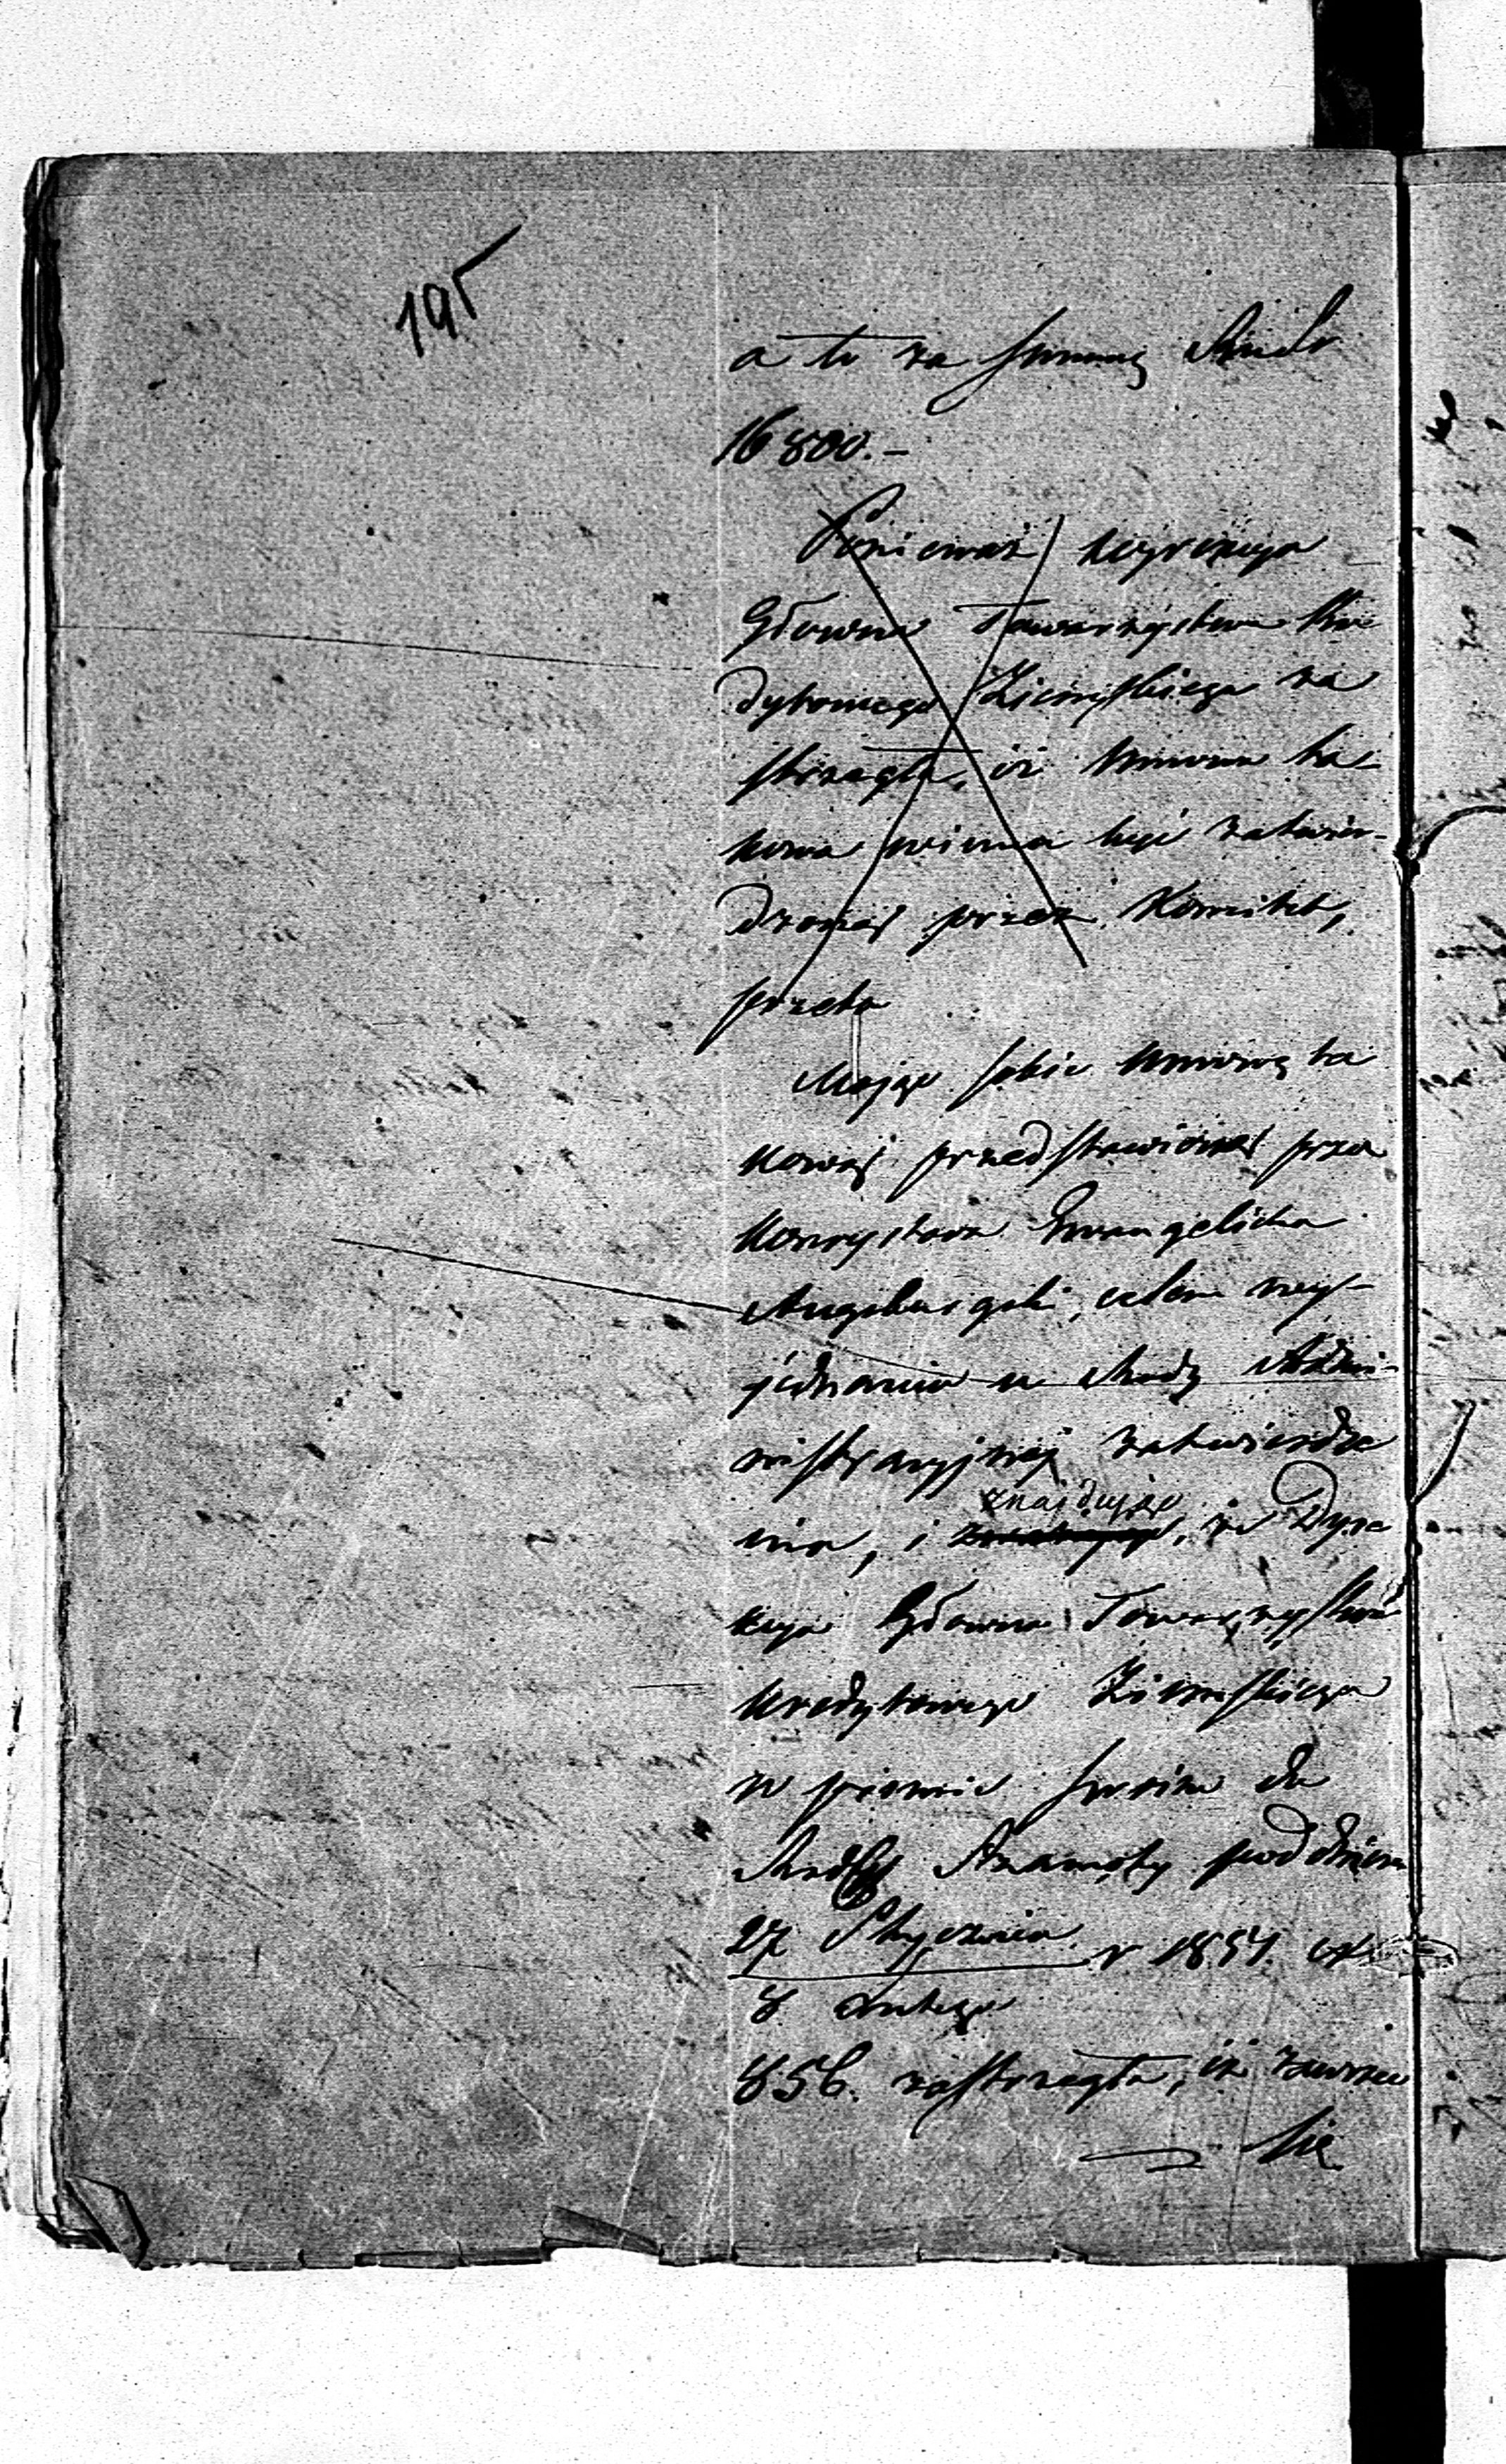 195
a to za summę
16800.-
Ponieważ Dyrekcya
Główna Towarzystwa Kre
dytowego Ziemskiego za
strzegła, iż umowa ta
kowa winna być zatwier-
dzoną przez Komitet,
przeto
Mając sobie umowę ta
kową przedstawioną przez
Konsystorz Ewangelicko
Augsburgski, celem wy-
jednania w Radzie Admi-
nistracyjnej zatwierdze
nia, i znajdując, że Dyre
kcya Główna Towarzystwa
Kredytowego Ziemskiego
w piśmie swoim do
Szamoty pod dniem
27 Stycznia r 1857. N
8 Lutego
856. zastrzegła, iż zawsze
się